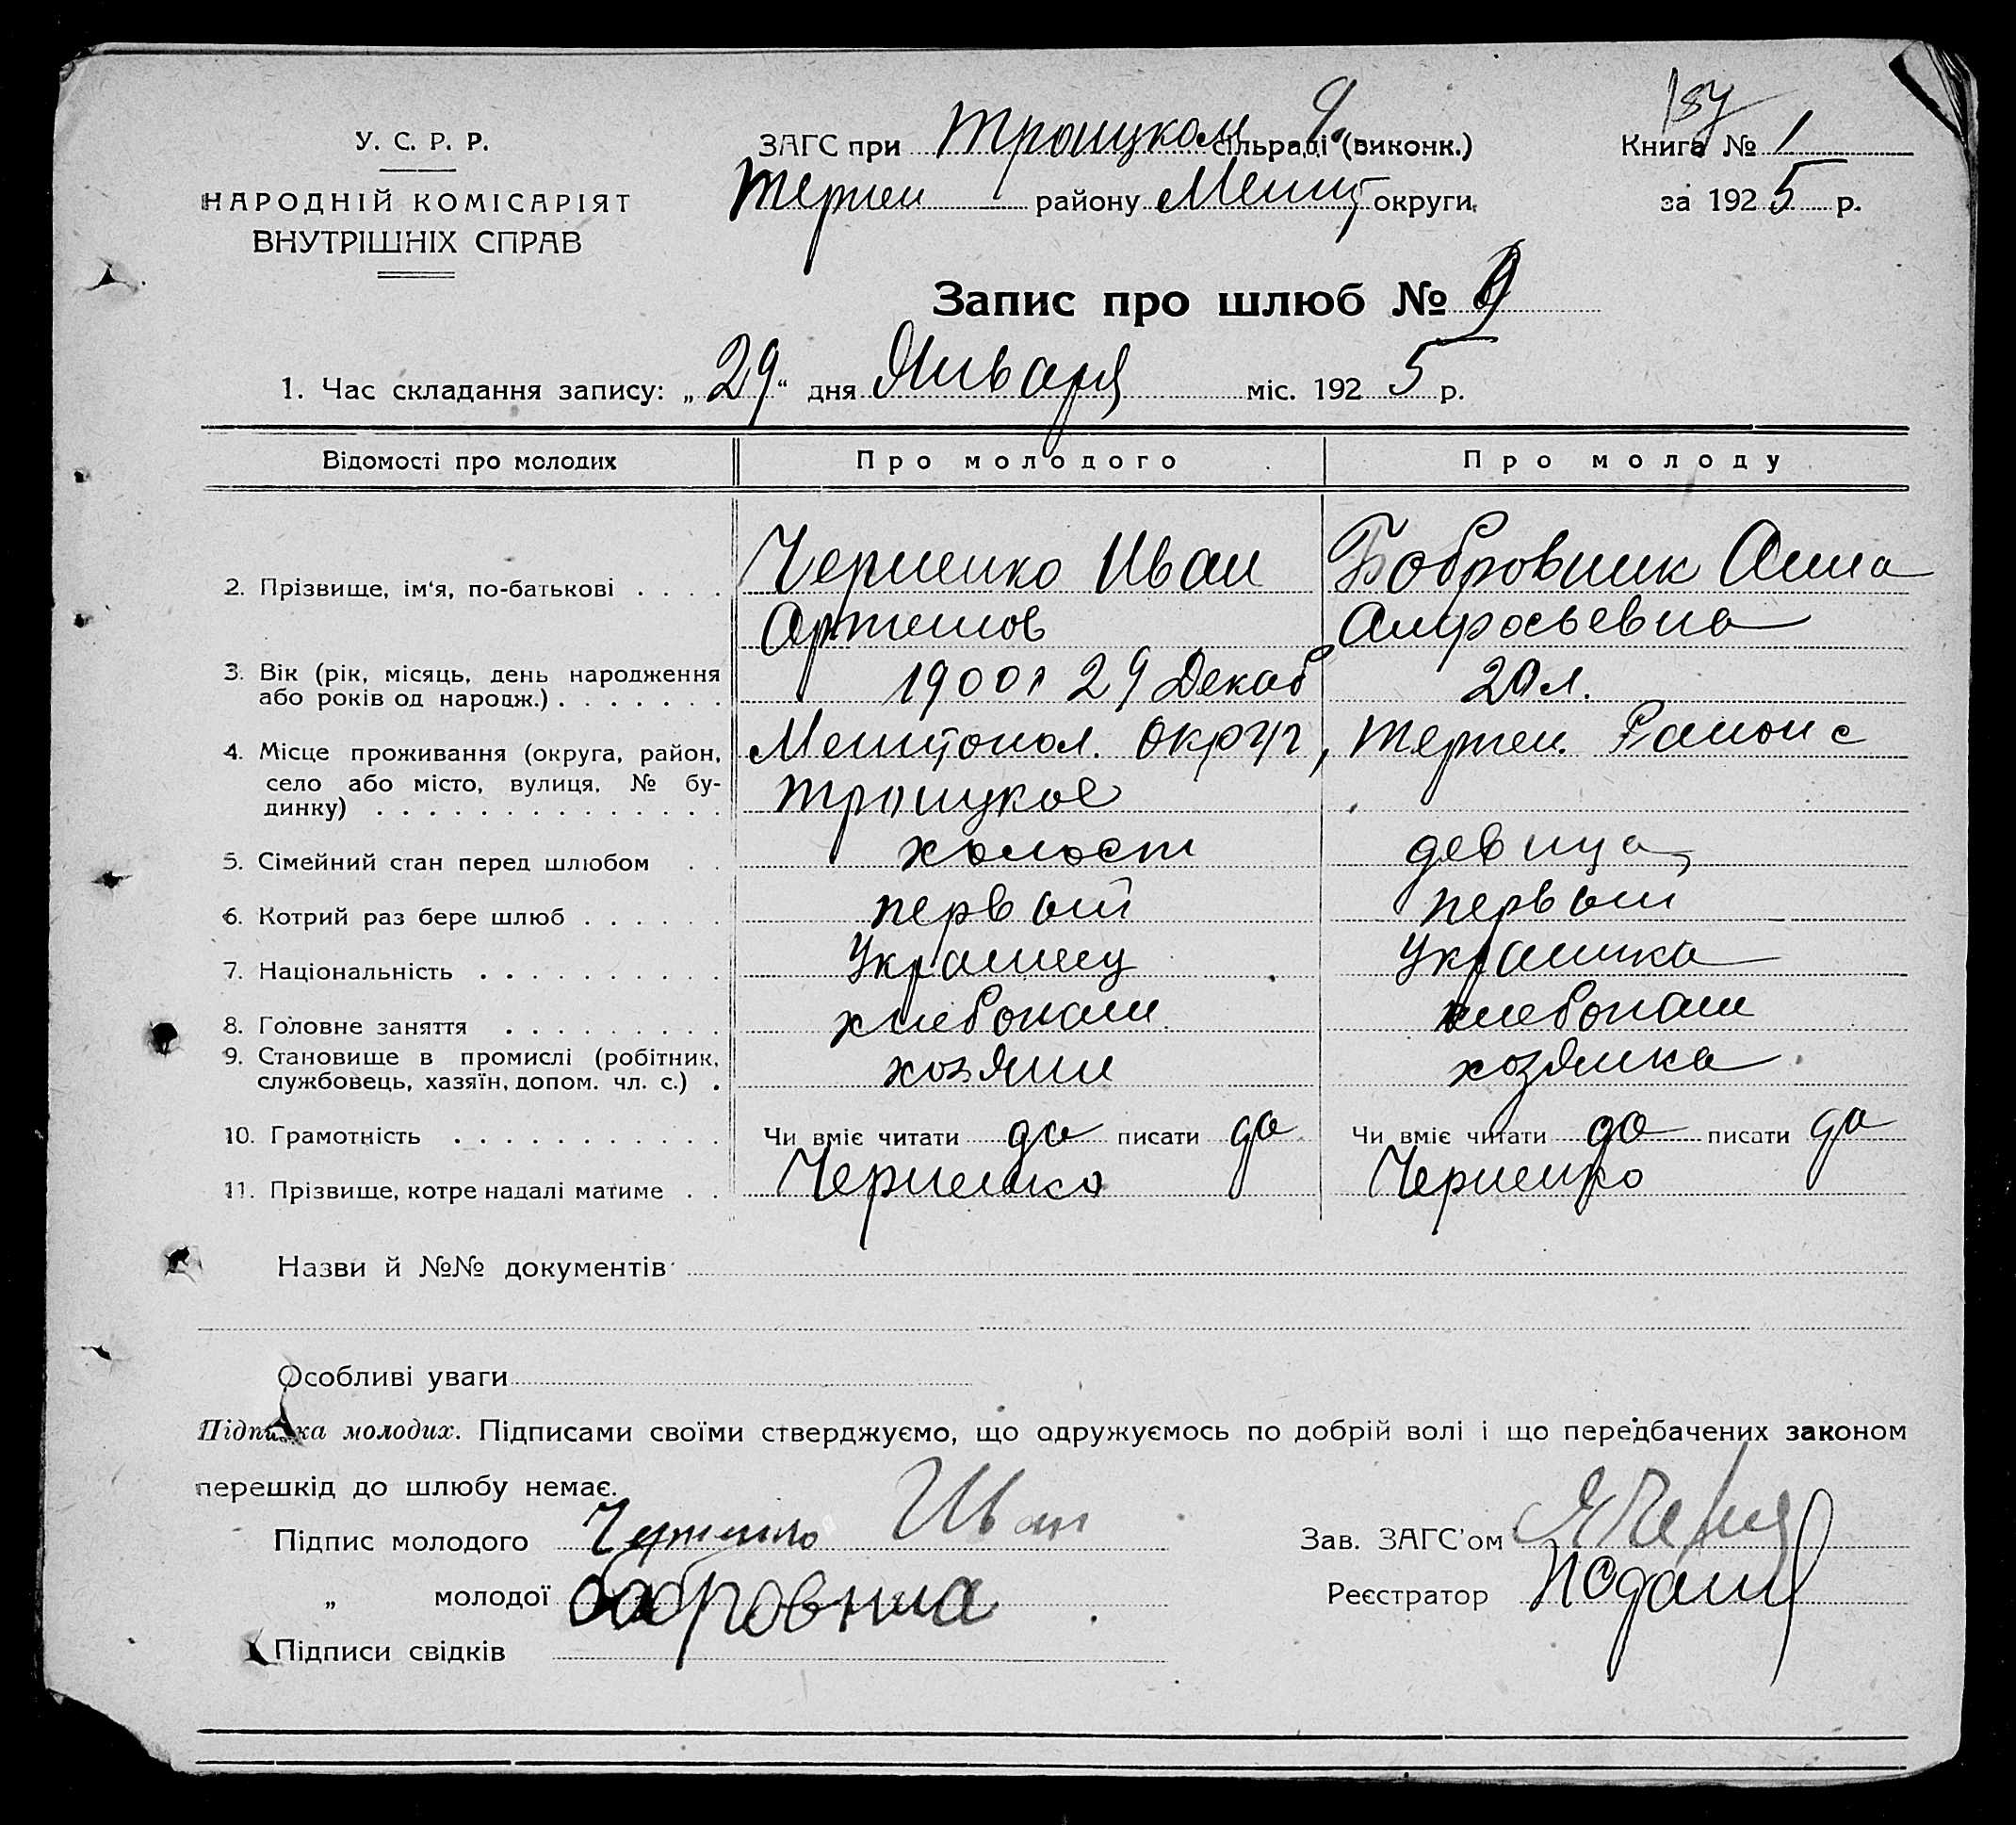 У. С. Р. Р.
НАРОДНІЙ КОМІСАРІЯТ
ВНУТРІШНІХ СПРАВ
ЗАГС при Троицком сільраді (виконк.)
Терпен району Мелит округи,
Книга № 1
за 1925 р.
Запис про шлюб № 9
1. Час складання запису: „29“ дня Января міс. 1925 р.
Відомості про молодих Про молодого Про молоду
2. Прізвище, ім'я, по-батькові . . . . Черненко Иван Бобровник Анна
Артемов
3. Вік (рік, місяць, день народження або років од народж.) . . . . . . . 1900 29 Декаб 20 л.
4. Місце проживання (округа, район, село або місто, вулиця, № будинку) . . . . . . . . . . . . . . Мелитопол. округ, Терпен. Район с
Троицкое
5. Сімейний стан перед шлюбом . . холост девица
6. Котрий раз бере шлюб . . . . . . первый первый
7. Національність . . . . . . . . . . Украинец Украинка
8. Головне заняття . . . . . . . . . хлебопаш хлебопаш
9. Становище в промислі (робітник, службовець, хазяїн, допом. чл. с.) . хозяин хозяйка
10. Грамотність . . . . . . . . . . . Чи вміє читати да писати да Чи вміє читати да писати да
11. Прізвище, котре надалі матиме . . Черненко Черненко
Назви й №№ документів
Особливі уваги
Підписка молодих. Підписами своїми стверджуємо, що одружуємось по добрій волі і що передбачених законом
перешкід до шлюбу немає.
Підпис молодого Черненко Иван
Зав. ЗАГС'ом
„ молодої
Реєстратор
Підписи свідків